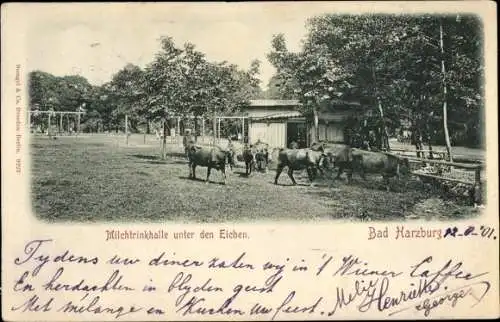 Stengel & Co. Dresden-Berlin.
Milchtrinkhalle unter den Eichen.
Bad Harzburg 12-8-'01.
Tydens uw diner zaten wij in 't Wiener Caffee
En herdachten in blyden geest
Met mélange en Kuchen uw feest.
Melie Henriette
George